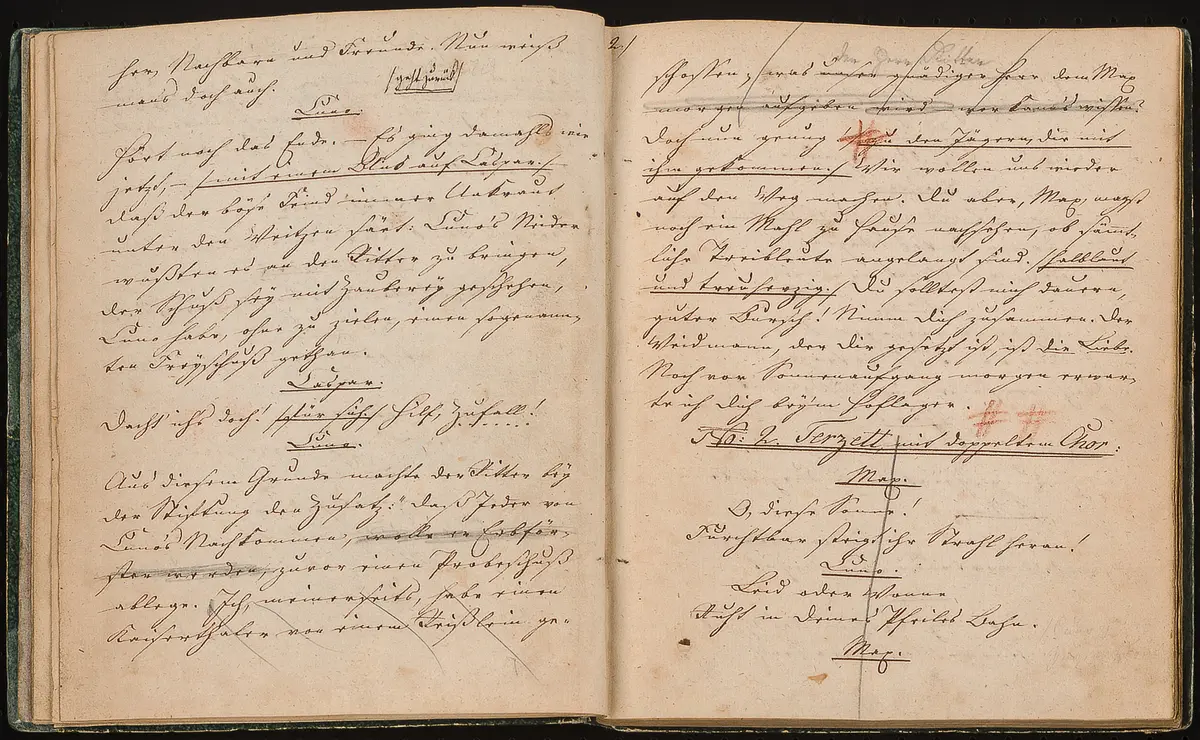 her, Nachbarn und Freunde. Nun weiß
mans doch auch. /geht zurück/
Cuno.
Hört noch das Ende. – Es ging damahls wie
jetzt, – /mit einem Blick auf Caspar./
daß der böse Feind immer Unkraut
unter den Weitzen säet: Cuno's Neider
wußten es an den Ritter zu bringen,
der Schuß sey mit Zauberey geschehen,
Cuno habe, ohne zu zielen, einen sogenann-
ten Freyschuß gethan.
Caspar.
Dacht ichs doch! /für sich./ Hilf, Zufall!
Cuno.
Aus diesem Grunde machte der Ritter bey
der Stiftung den Zusatz: "daß Jeder von
Cuno's Nachkommen, wolle er Erbför-
ster werden, zuvor einen Probeschuß
ablege. Ich, meinerseits, habe einen
Kaiserthaler von einem Reißlein ge-
2./
der Herr Ritter
schossen, was unser gnädiger Herr dem Max
morgen aufgeben wird wer kann's wissen?
Doch nun genug! /zu den Jägern, die mit
ihm gekommen:/ Wir wollen uns wieder
auf den Weg machen. Du aber, Max, magst
noch ein Mahl zu Hause nachsehen, ob sämt-
liche Treibleute angelangt sind. /halblaut
und treuherzig./ Du solltest mich dauern,
guter Bursch! Nimm dich zusammen. Der
Weidmann, der dir gesetzt ist, ist die Liebe.
Noch vor Sonnenaufgang morgen erwar-
te ich dich bey'm Hoflager.
No: 2. Terzett, mit doppeltem Chor:
Max.
O, diese Sonne!
Furchtbar steigt ihr Strahl heran!
Cuno.
Leid oder Wonne
Ruht in deines Pfeiles Bahn.
Max.